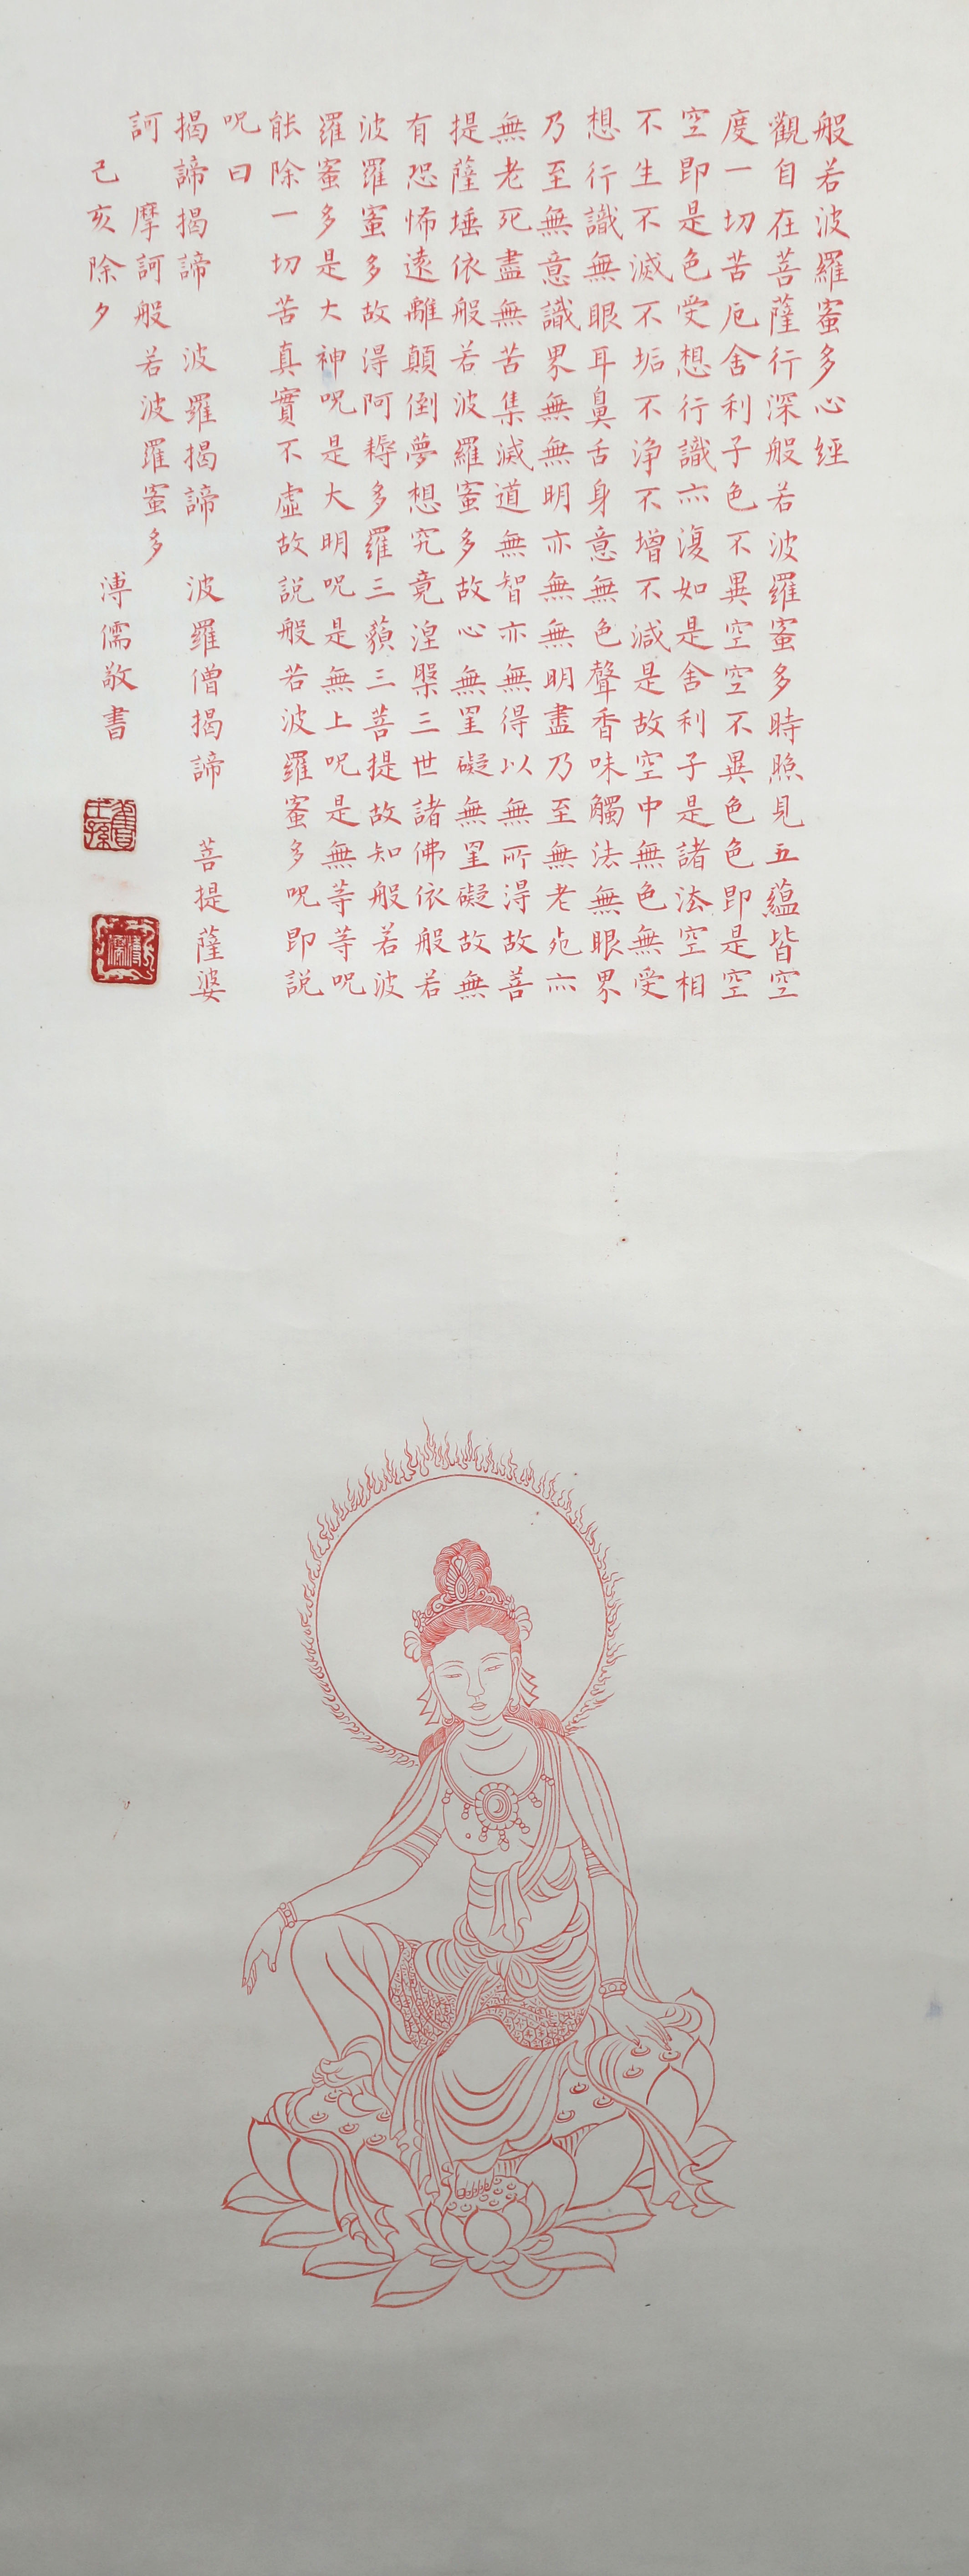 般若波羅蜜多心經
觀自在菩薩行深般若波羅蜜多時照見五蘊皆空
度一切苦厄舍利子色不異空空不異色色即是空
空即是色受想行識亦復如是舍利子是諸法空相
不生不滅不垢不淨不增不減是故空中無色無受
想行識無眼耳鼻舌身意無色聲香味觸法無眼界
乃至無意識界無無明亦無無明盡乃至無老死亦
無老死盡無苦集滅道無智亦無得以無所得故菩
提薩埵依般若波羅蜜多故心無罣礙無罣礙故無
有恐怖遠離顛倒夢想究竟涅槃三世諸佛依般若
波羅蜜多故得阿耨多羅三藐三菩提故知般若波
羅蜜多是大神呪是大明呪是無上呪是無等等呪
能除一切苦真實不虛故說般若波羅蜜多呪即說
呪曰
揭諦揭諦 波羅揭諦 波羅僧揭諦 菩提薩婆
訶 摩訶般若波羅蜜多
己亥除夕 溥儒敬書
舊王孫
溥儒